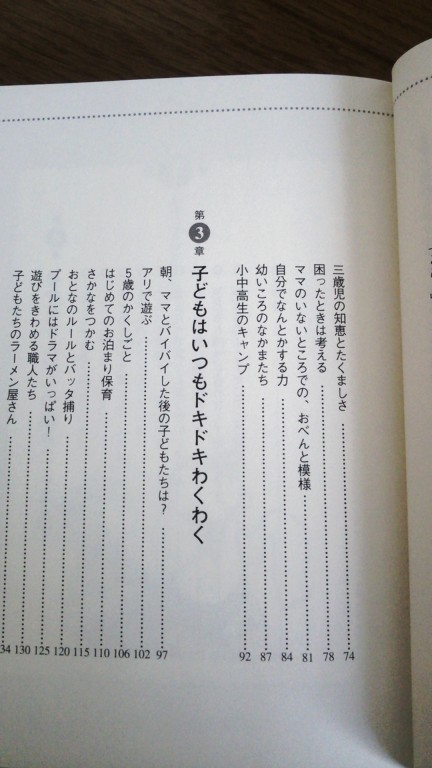 三歳児の知恵とたくましさ 74
困ったときは考える 78
ママのいないところでの、おべんと模様 81
自分でなんとかする力 84
幼いころのなかまたち 87
小中高生のキャンプ 92
第3章 子どもはいつもドキドキわくわく
朝、ママとバイバイした後の子どもたちは? 97
アリで遊ぶ 102
5歳のかくしごと 106
はじめてのお泊まり保育 110
さかなをつかむ 115
おとなのルールとバッタ捕り 120
プールにはドラマがいっぱい! 125
遊びをきわめる職人たち 130
子どもたちのラーメン屋さん 34